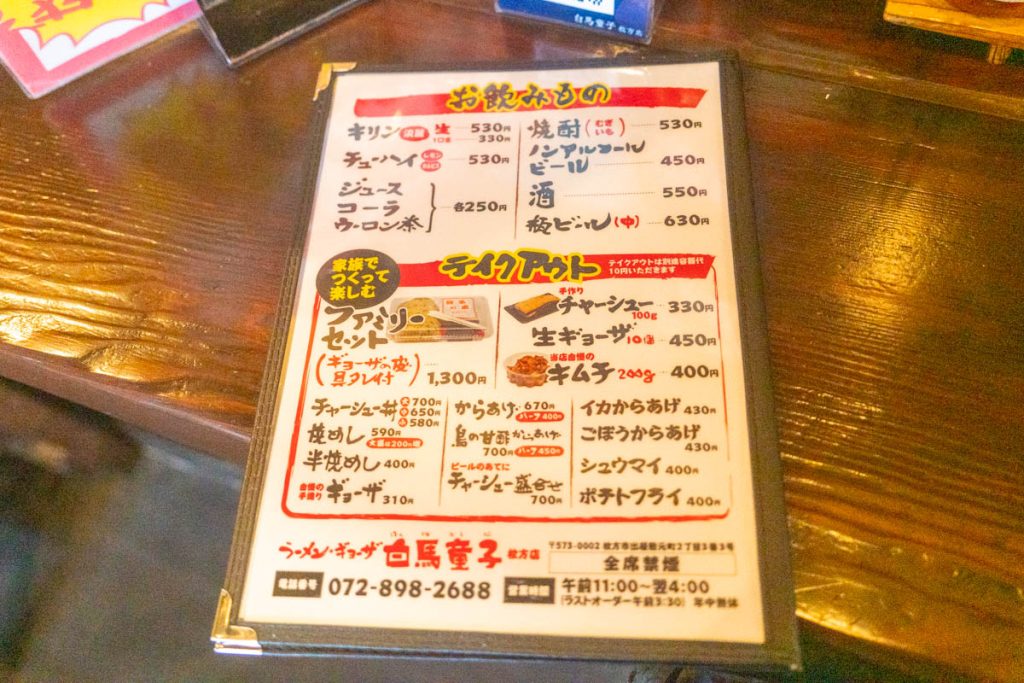 白馬童子 枚方店
お飲みもの
キリン 淡麗 生 530円
330円
チューハイ レモン 530円
ジュース
コーラ
ウーロン茶
各250円
焼酎(むぎ いも) 530円
ノンアルコール
ビール 450円
酒 550円
瓶ビール(中) 630円
テイクアウト
テイクアウトは別途容器代
10円いただきます
家族で
つくって
楽しむ
ファミリー
セット
(ギョーザの皮
具タレ付) 1,300円
手作り
チャーシュー 100g 330円
生ギョーザ 10個 450円
当店自慢の
キムチ 200g 400円
チャーシュー丼 大 700円
中 650円
小 580円
焼めし 590円
大盛は200円増
半焼めし 400円
自慢の
手造り
ギョーザ 310円
からあげ 670円
ハーフ400円
鳥の甘酢からあげ
700円 ハーフ450円
ビールのあてに
チャーシュー盛合せ
700円
イカからあげ 430円
ごぼうからあげ
430円
シュウマイ 400円
ポテトフライ 400円
ラーメン・ギョーザ 白馬童子 枚方店
電話番号 072-898-2688
〒573-0002 枚方市出屋敷元町2丁目3番3号
全席禁煙
営業時間 午前11:00〜翌4:00
(ラストオーダー午前3:30) 年中無休